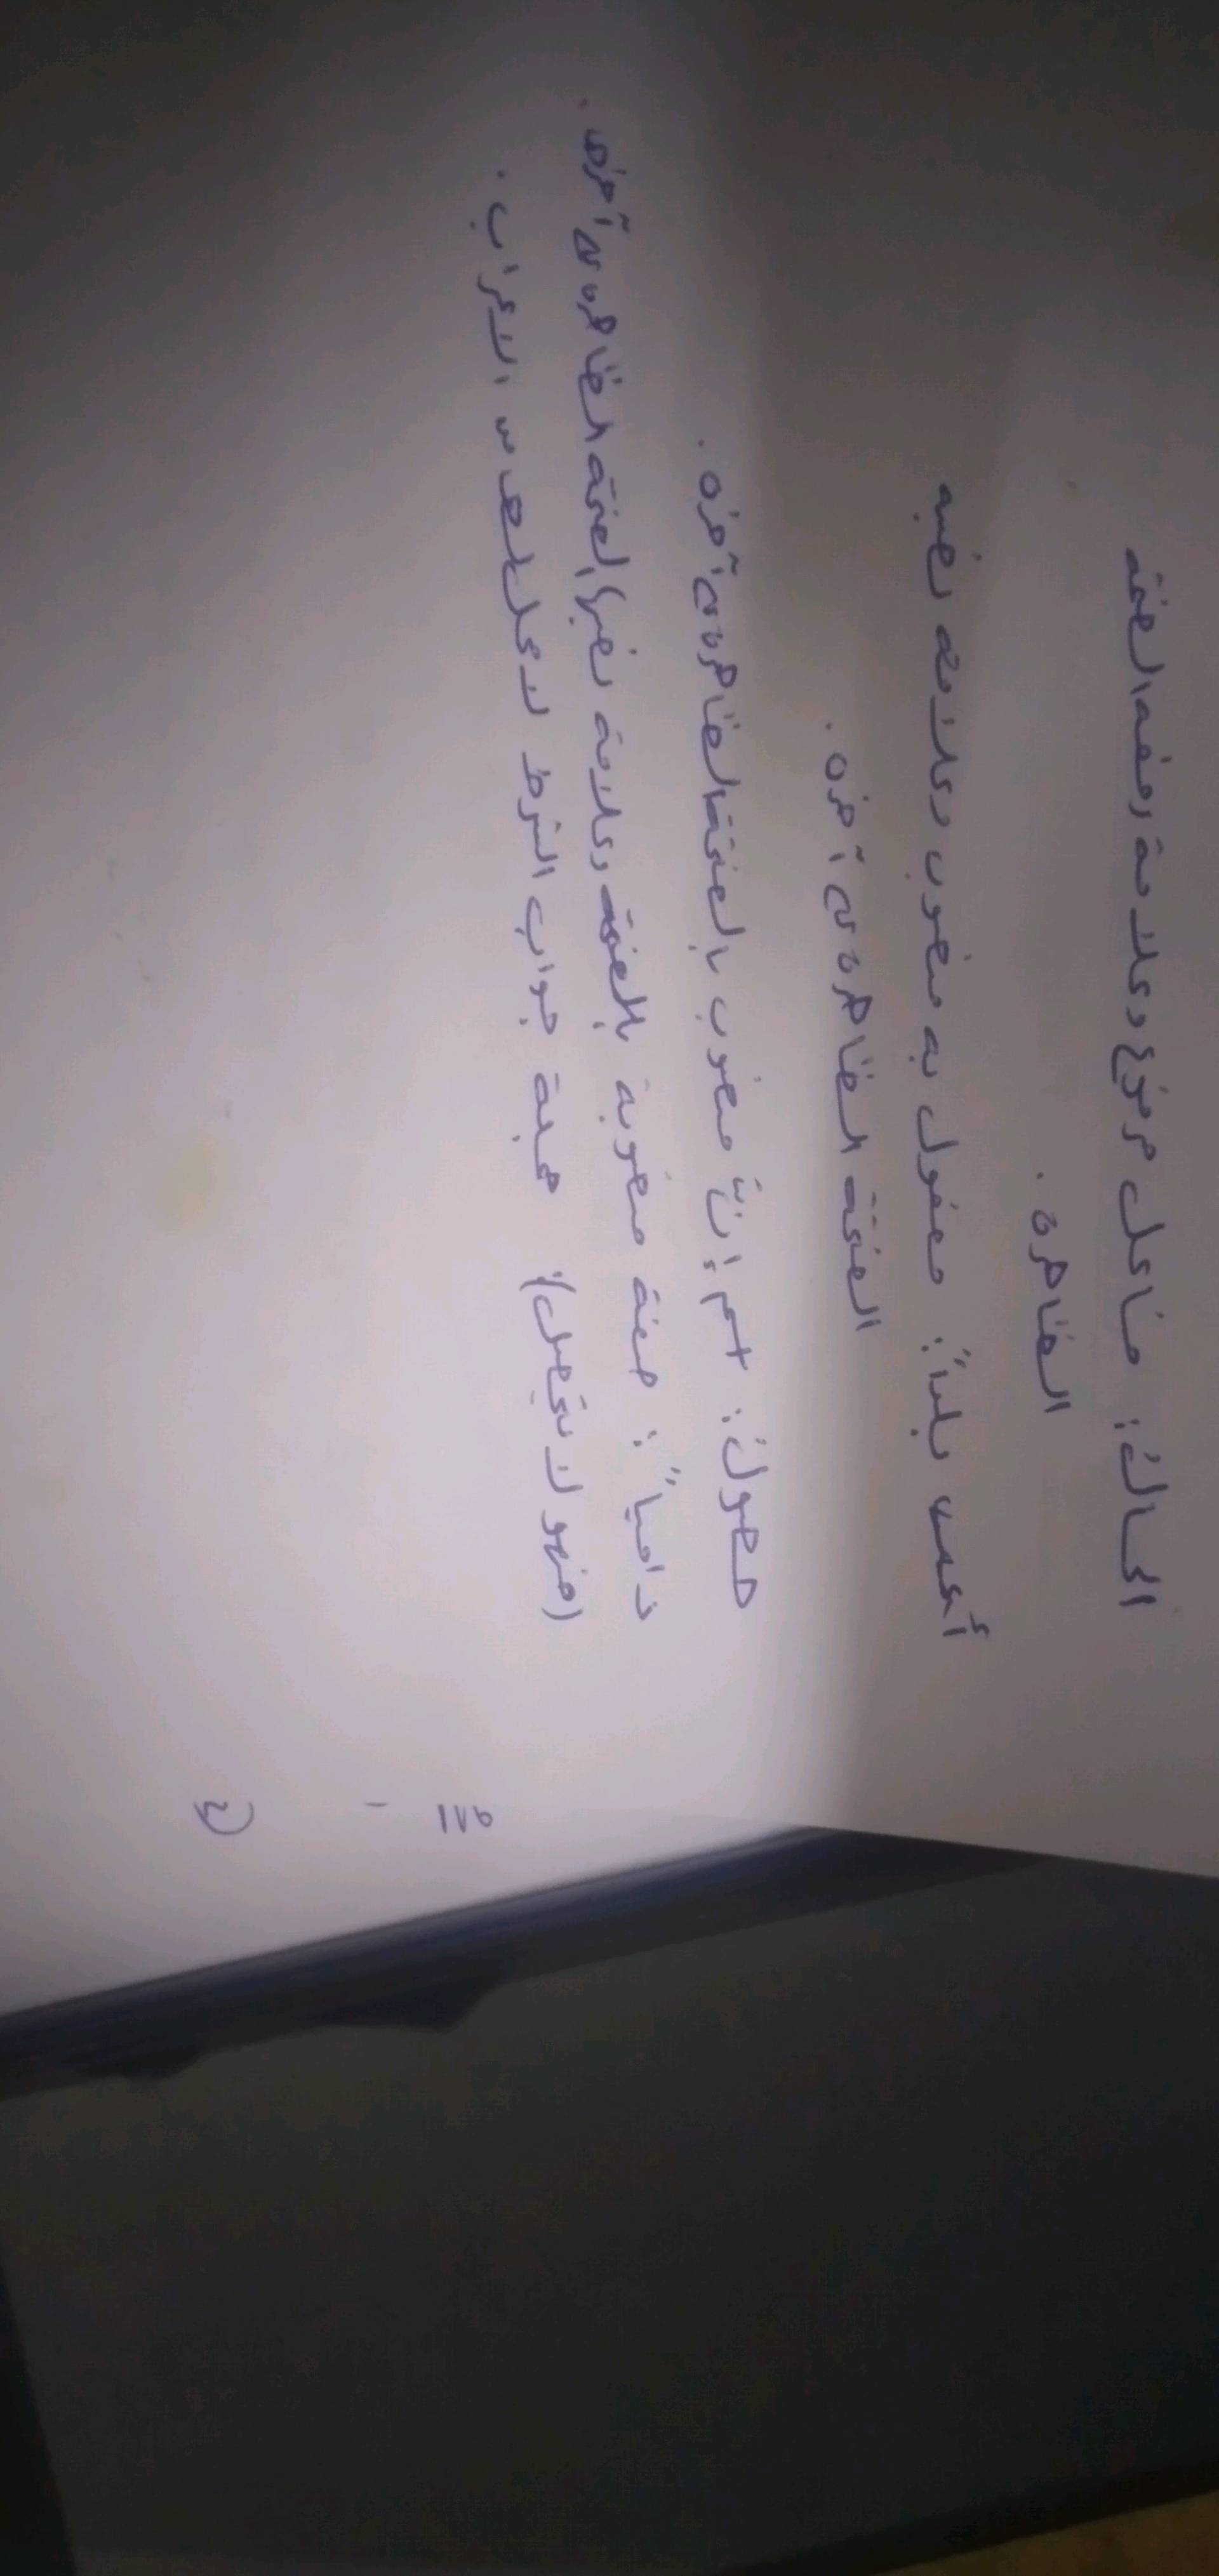 المالُ: فاعل مرفوع وعلامة رفعه الضمة
الظاهرة.
أ بلداً: مفعول به منصوب وعلامة نصبه
الفتحة الظاهرة على آخره.
هطولَ: اسم إنّ منصوب بالفتحة الظاهرة على آخره.
دامياً: صفة منصوبة بالفتحة وعلامة نصبها الفتحة الظاهرة على آخرها.
(فهو لا يتصل): جملة جواب الشرط لا محل لها من الإعراب.